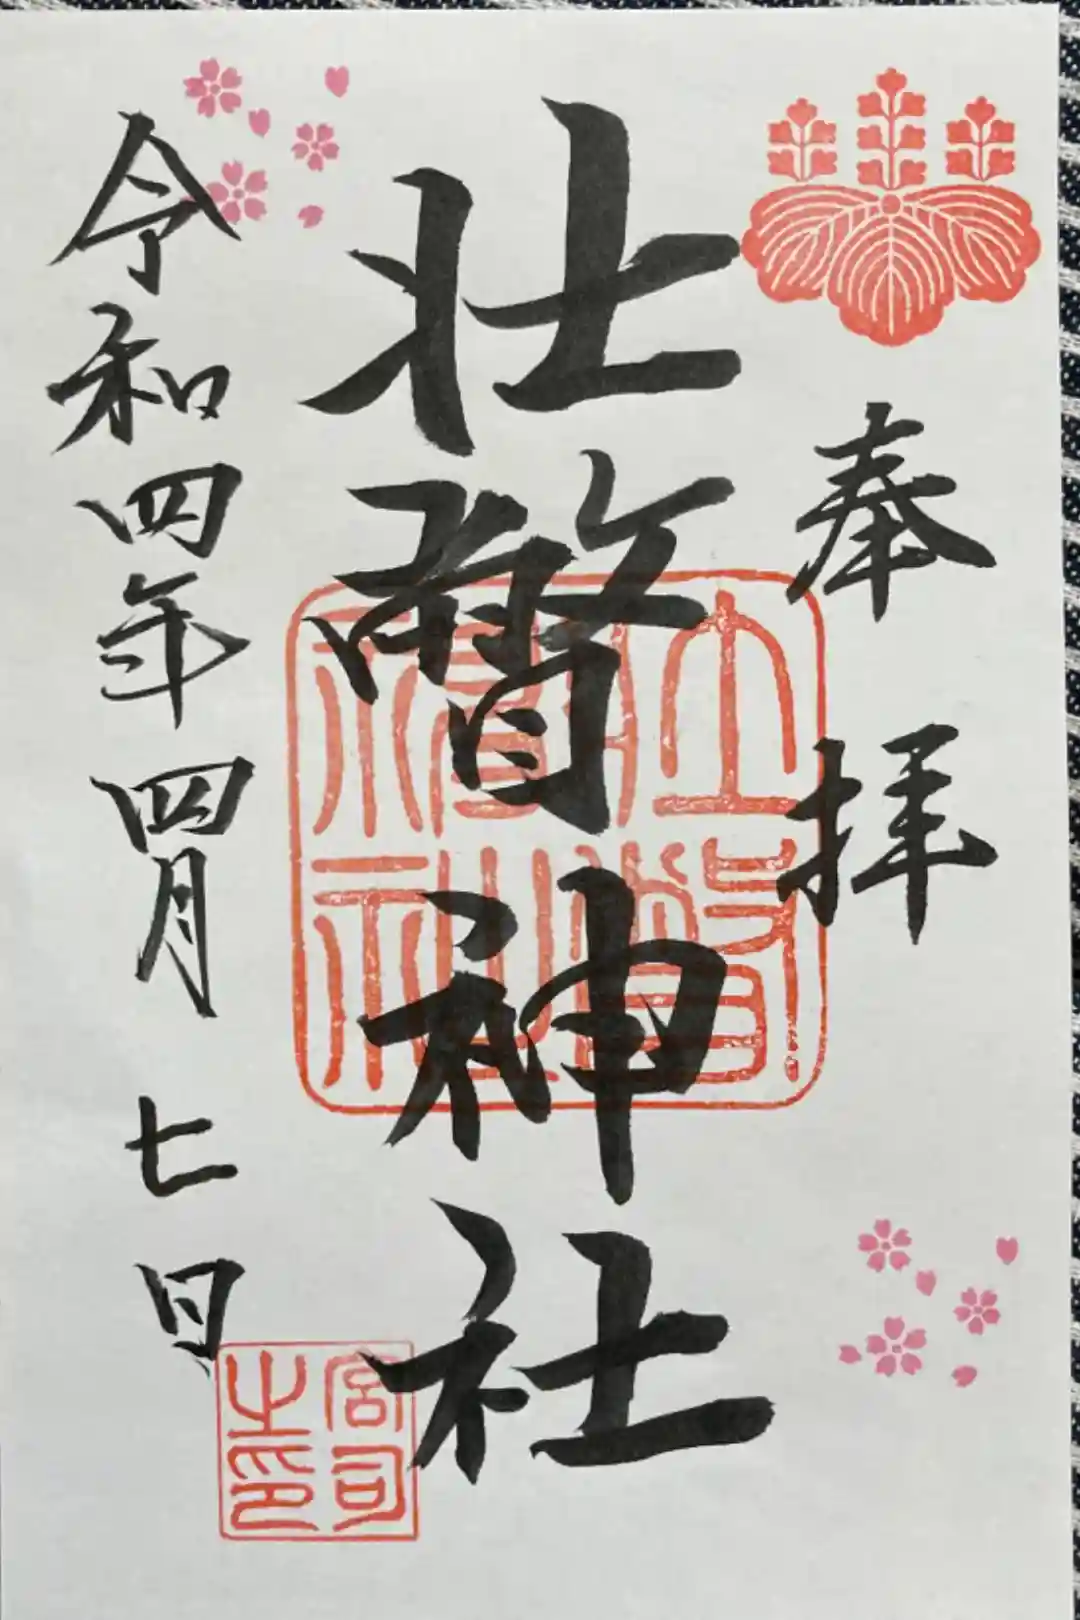 奉拝
壮瞥神社
壮瞥神社
令和四年四月七日
宮司之印